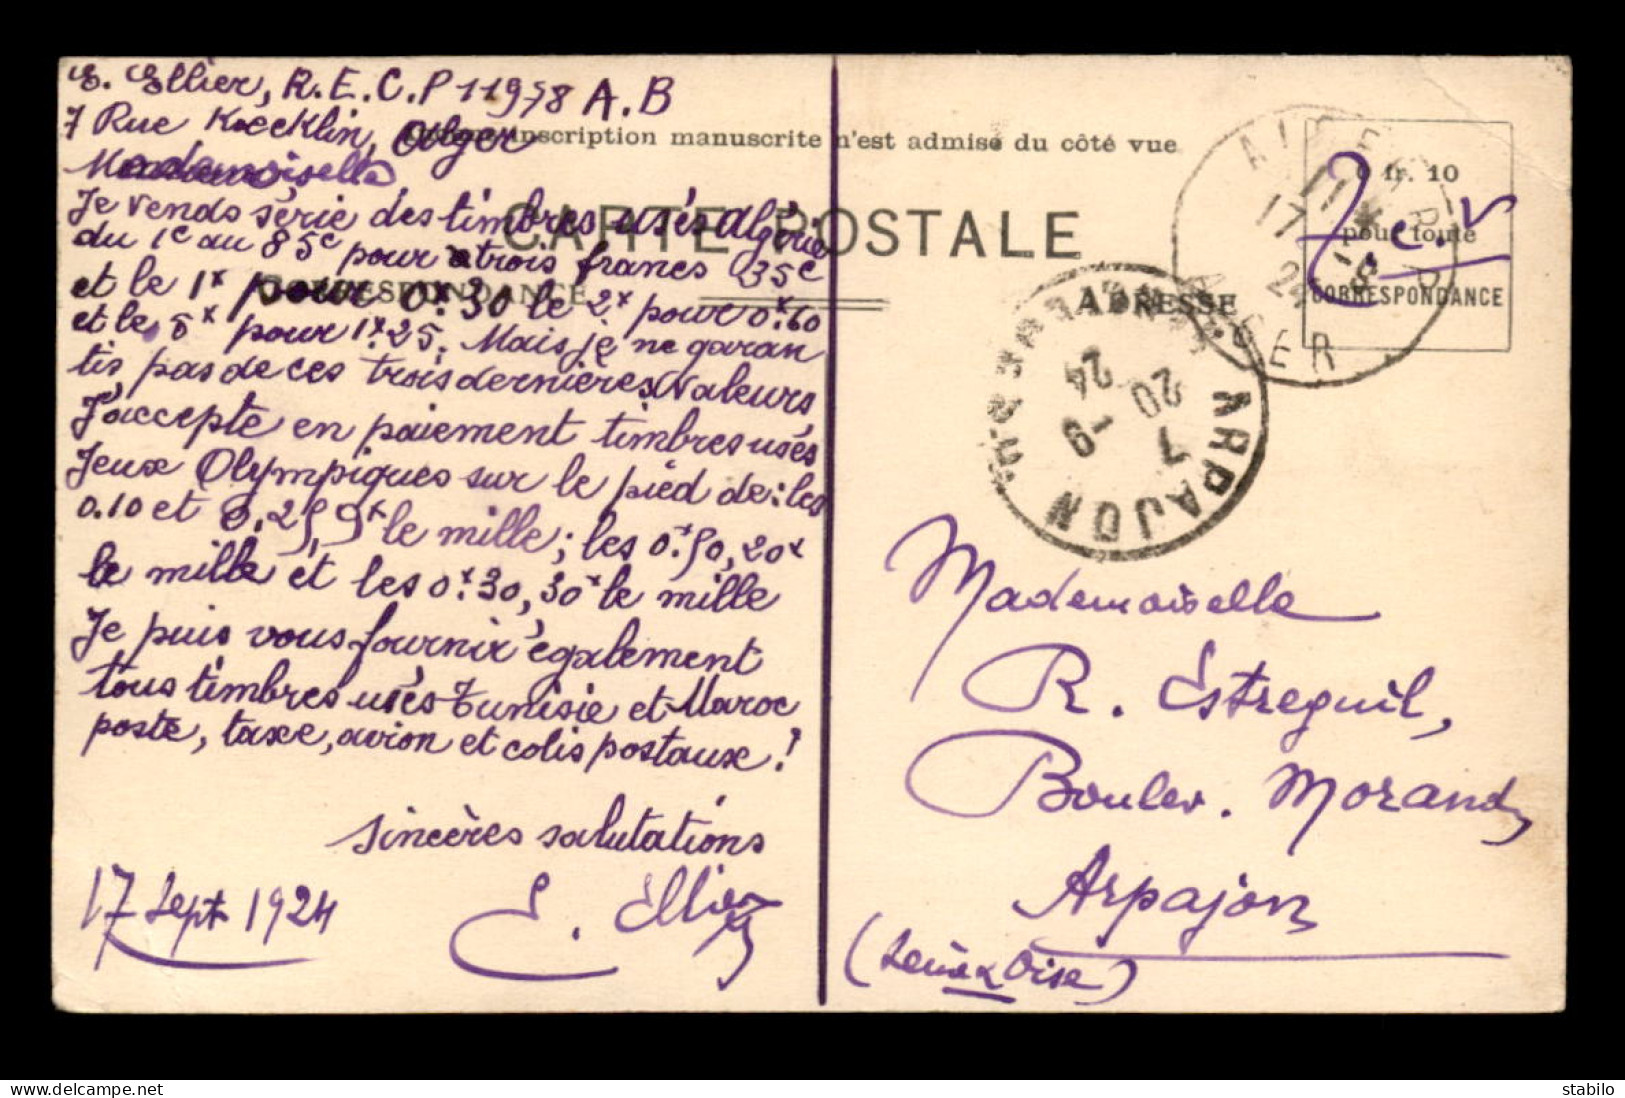 E. Ellier, R.E.C.P 11978 A.B
7 Rue Kœcklin, Alger
Mademoiselle
Je vends série des timbres usés Algérie
du 1c au 85c pour trois francs 35c
et le 1x pour 0x.30 le 2x pour 0x.60
et le 5x pour 1x.25. Mais je ne garan
tis pas de ces trois dernières valeurs
J'accepte en paiement timbres usés
Jeux Olympiques sur le pied de: les
0.10 et 0,25, 9x le mille; les 0x.50, 20x
le mille et les 0x.30, 30x le mille
Je puis vous fournir également
tous timbres usés Tunisie et Maroc
poste, taxe, avion et colis postaux!
Sincères salutations
17 Sept 1924
E. Ellier
inscription manuscrite n'est admise du côté vue
CARTE POSTALE
CORRESPONDANCE
ADRESSE
0 fr. 10
pour toute
CORRESPONDANCE
J.C.V
ALGER R.P
17
24
ALGER
ARPAJON
7
20 -9
24
Mademoiselle
R. Estreguil,
Boulev. Morand,
Arpajon
(Seine & Oise)
stabilo
www.delcampe.net